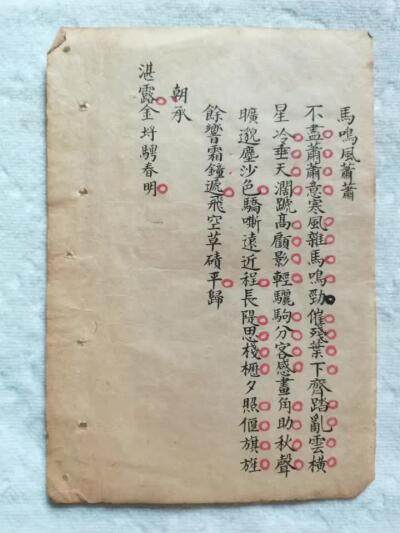 馬鳴風蕭蕭
不盡蕭蕭意寒風雜馬鳴勁催殘葉下齊踏亂雲橫
星冷垂天濶蹏高顧影輕驪駒分客感畫角助秋聲
曠邈塵沙色驕嘶遠近程長隄思棧櫪夕照偃旗旌
餘響霜鐘遞飛空草磧平歸
朝承
湛露金埒騁春明